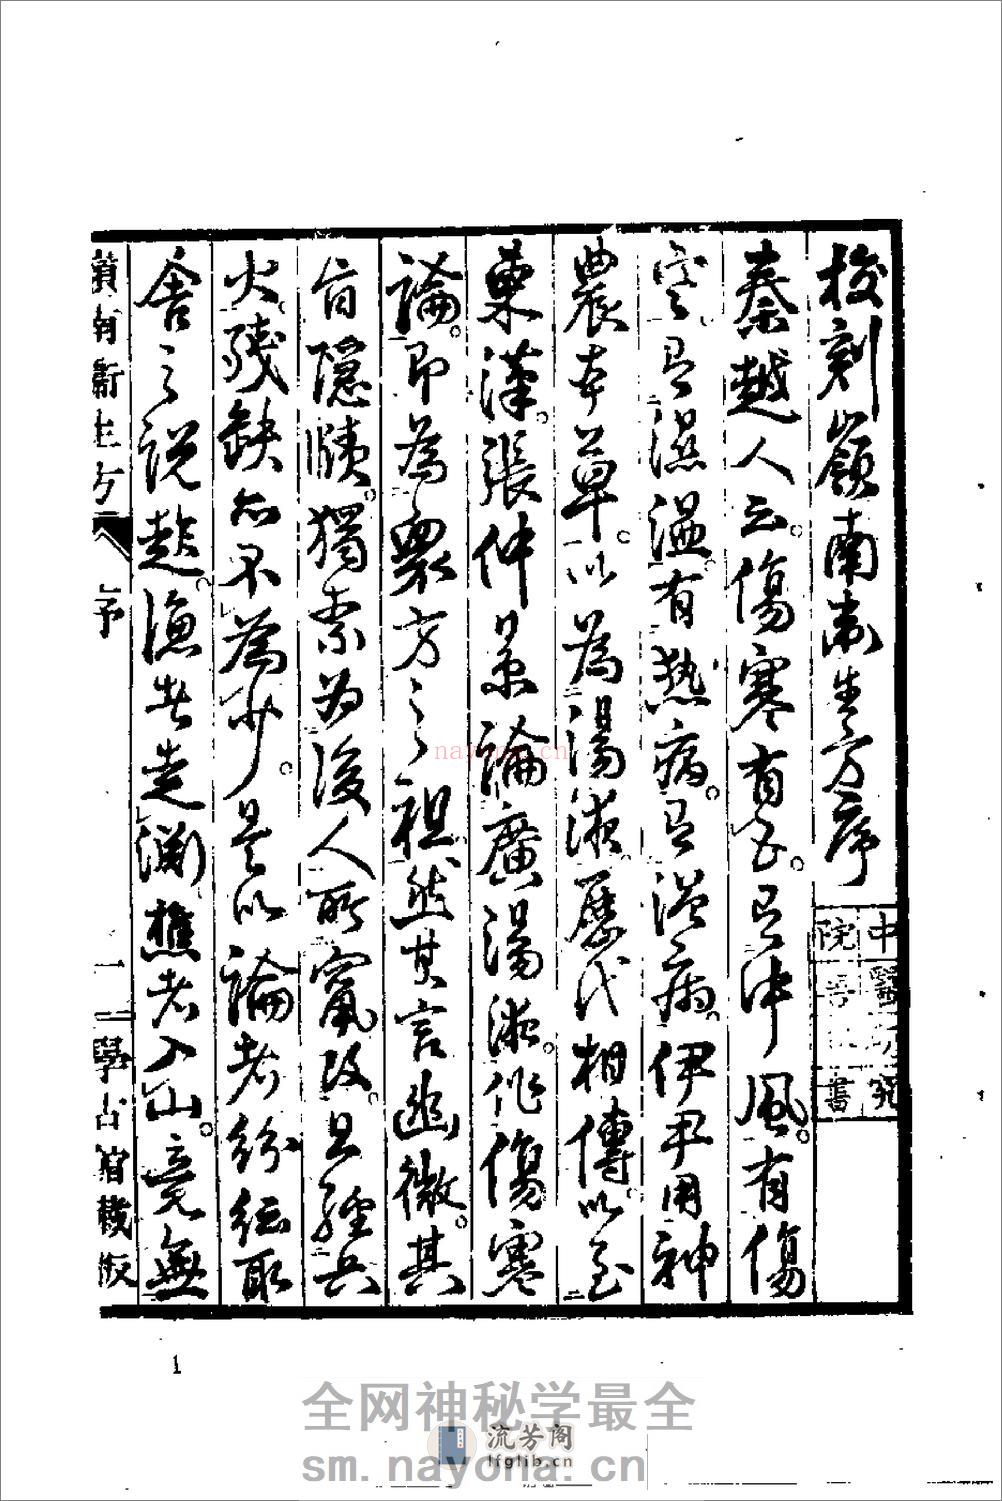 校刻嶺南衛生方序
秦越人云。傷寒有五。有中風。有傷
寒。有濕溫。有熱病。有溫病。伊尹用神
農本草。以為湯液。歷代相傳。以至
東漢。張仲景論廣湯液。作傷寒
論。即為眾方之祖。然其言幽微。其
旨隱賾。獨索為後人所竄改。且經兵
火。殘缺亦不為少。是以論者紛紜。取
舍之說起。漁者走淵。樵者入山。竟無
嶺南衛生方
序
一
學古館藏版
中醫研究
院 書
nayona.cn
1
全网神秘学最全
流芳阁
lfglib.cn
sm.nayona.cn